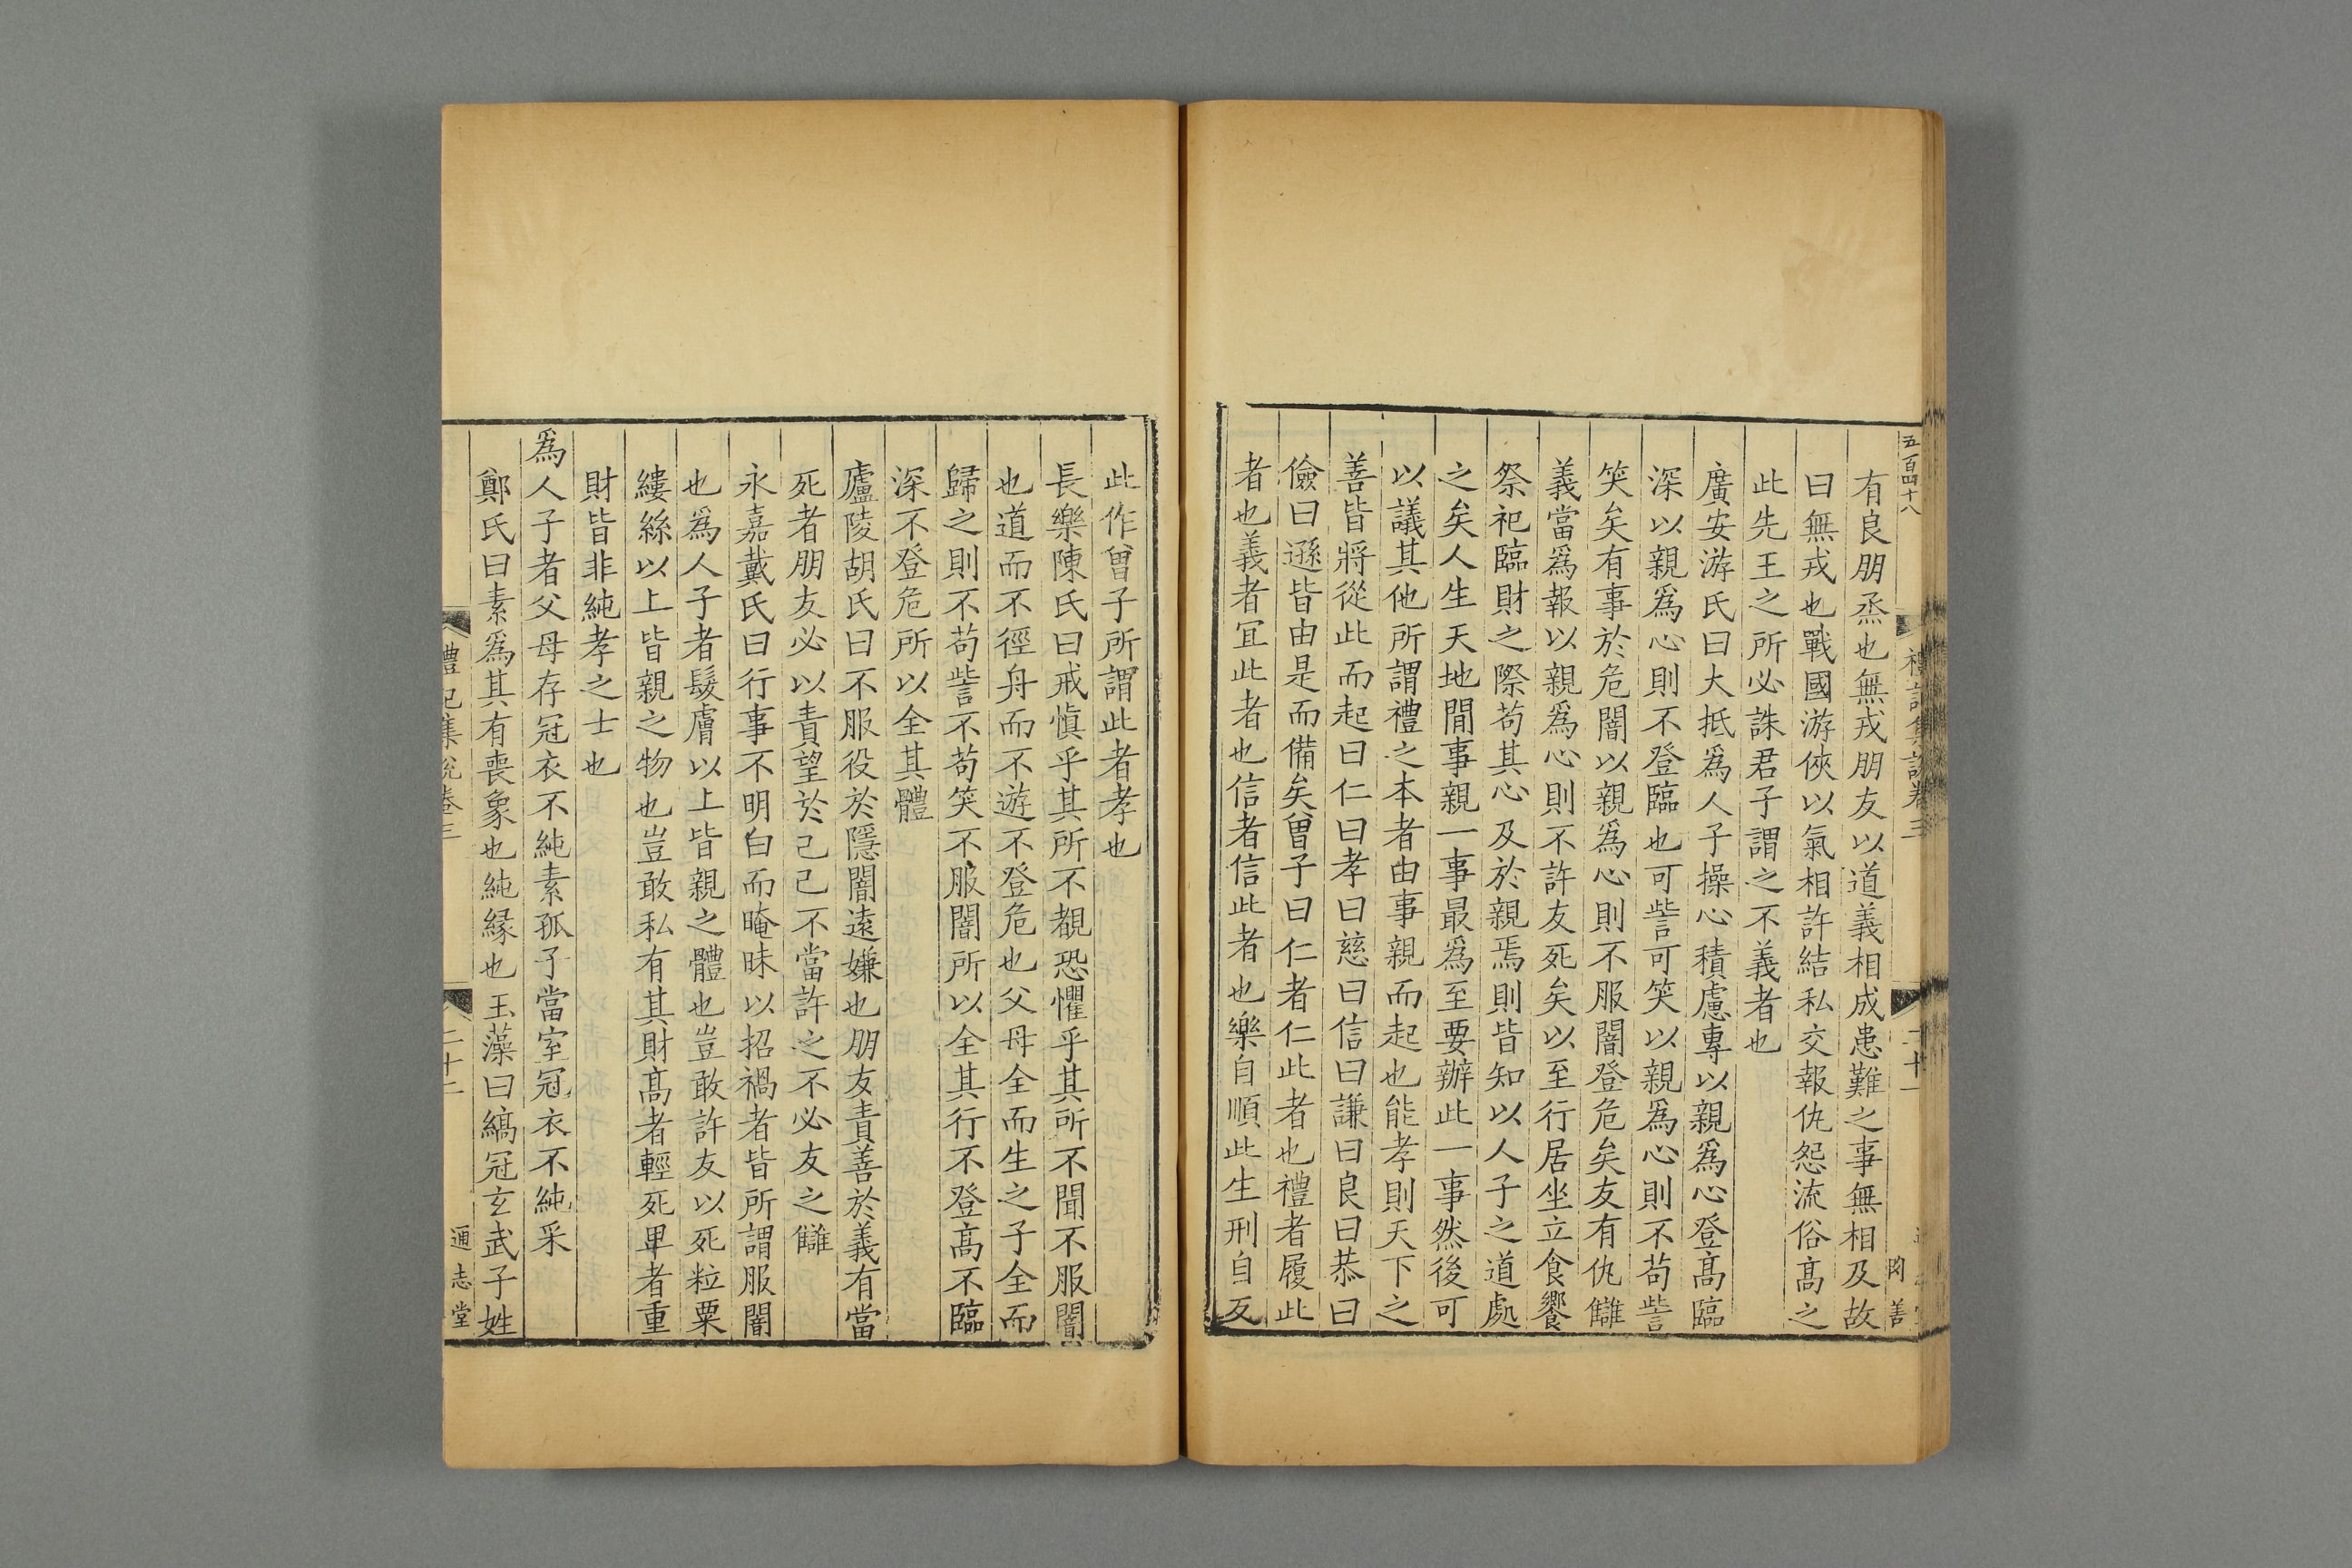 五百四十八
禮記集說卷三
二十一
因善
有良朋烝也無戎朋友以道義相成患難之事無相及故
曰無戎也戰國游俠以氣相許結私交報仇怨流俗髙之
此先王之所必誅君子謂之不義者也
廣安游氏曰大抵爲人子操心積慮專以親爲心登髙臨
深以親爲心則不登臨也可訾可笑以親爲心則不苟訾
笑矣有事於危闇以親爲心則不服闇登危矣友有仇讎
義當爲報以親爲心則不許友死矣以至行居坐立食饗
祭祀臨財之際苟其心及於親焉則皆知以人子之道處
之矣人生天地間事親一事最爲至要辦此一事然後可
以議其他所謂禮之本者由事親而起也能孝則天下之
善皆將從此而起曰仁曰孝曰慈曰信曰謙曰良曰恭曰
儉曰遜皆由是而備矣曾子曰仁者仁此者也禮者履此
者也義者冝此者也信者信此者也樂自順此生刑自反
此作曾子所謂此者孝也
長樂陳氏曰戒愼乎其所不覩恐懼乎其所不聞不服闇
也道而不徑舟而不遊不登危也父母全而生之子全而
歸之則不苟訾不苟笑不服闇所以全其行不登髙不臨
深不登危所以全其體
廬陵胡氏曰不服役於隱闇遠嫌也朋友責善於義有當
死者朋友必以責望於己己不當許之不必友之讎
永嘉戴氏曰行事不明白而晻昧以招禍者皆所謂服闇
也爲人子者髮膚以上皆親之體也豈敢許友以死粒粟
縷絲以上皆親之物也豈敢私有其財髙者輕死卑者重
財皆非純孝之士也
爲人子者父母存冠衣不純素孤子當室冠衣不純采
鄭氏曰素爲其有喪象也純緣也玉藻曰縞冠玄武子姓
禮記集說卷三
二十二
通志堂